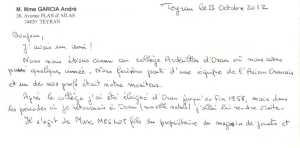 M. Mme GARCIA André
38, Avenue PLAN d'AILAS
34820 TEYRAN
Teyran le 23 Octobre 2012
Bonjour,
J'avais un ami !
Nous nous étions connu au collège Ardaillon d'Oran où nous
quelques année. Nous faisions parti d'une équipe de l'Aviron Oranais
et un de nos profs était notre moniteur.
Après le collège j'ai été éloigné d'Oran jusqu'en fin 1958, mais dans
les périodes où je retournais à Oran (ma ville natale) j'allais lui rendre visite.
Il s'agit de Marc fils du propriétaire du magasin de jouets et